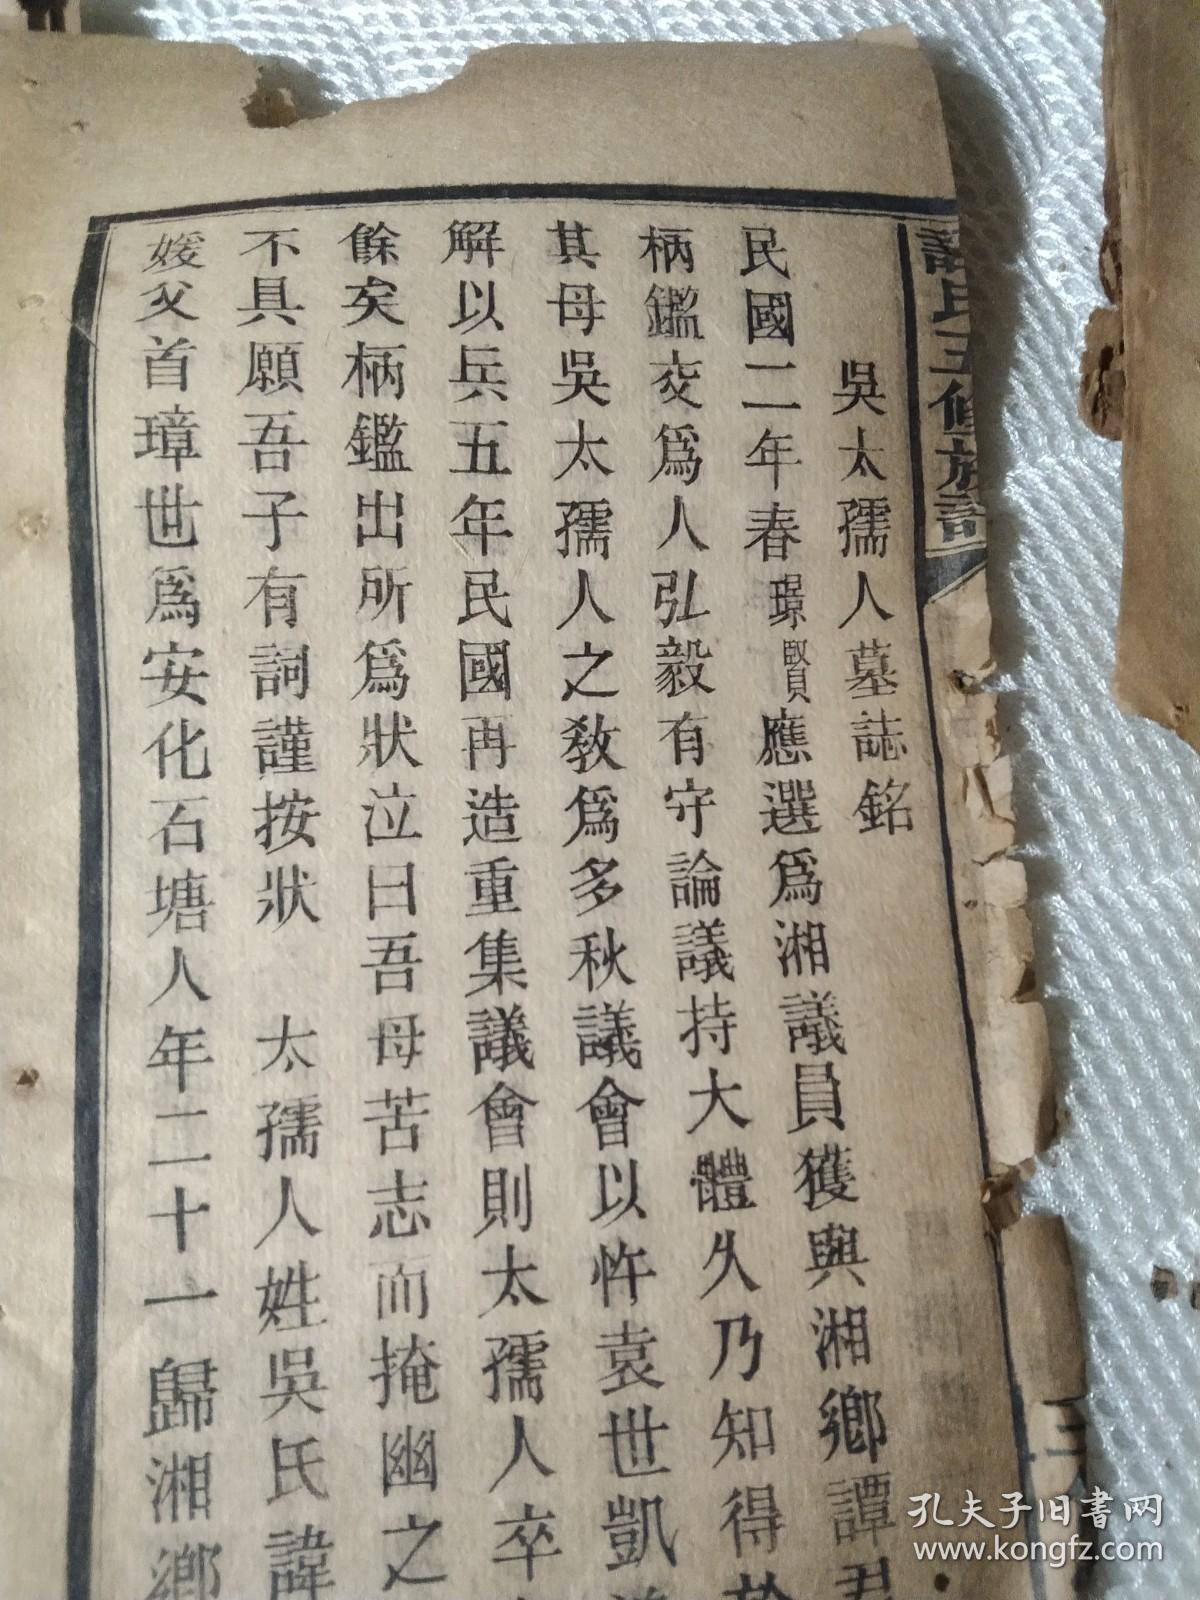 氏五修族譜
吳太孺人墓誌銘
民國二年春璟賢應選爲湘議員獲與湘鄉譚君
柄鑑交爲人弘毅有守論議持大體久乃知得於
其母吳太孺人之教爲多秋議會以忤袁世凱
解以兵五年民國再造重集議會則太孺人卒
餘矣柄鑑出所爲狀泣曰吾母苦志而掩幽之
不具願吾子有詞謹按狀 太孺人姓吳氏諱
媛父首璋世爲安化石塘人年二十一歸湘鄉
孔夫子旧书网
www.kongfz.com